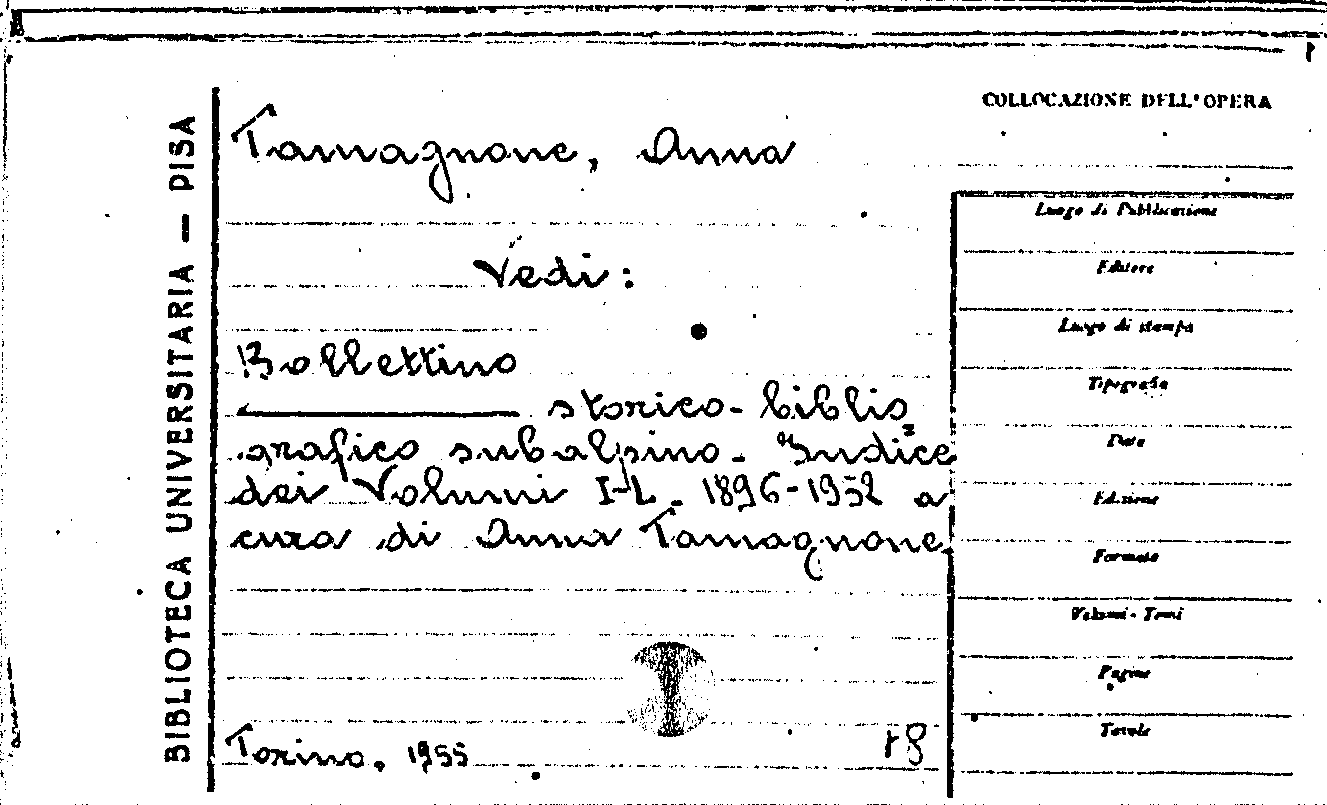 BIBLIOTECA UNIVERSITARIA — PISA
Tamagnone, Anna
Vedi:
Bollettino
storico-biblio
grafico subalpino - Indice
dei Volumi I-L. 1896-1952 a
cura di Anna Tamagnone.
Torino, 1955
COLLOCAZIONE DELL'OPERA
Luogo di Pubblicazione
Editore
Luogo di stampa
Tipografia
Data
Edizione
Formato
Volumi - Tomi
Pagine
Tavole